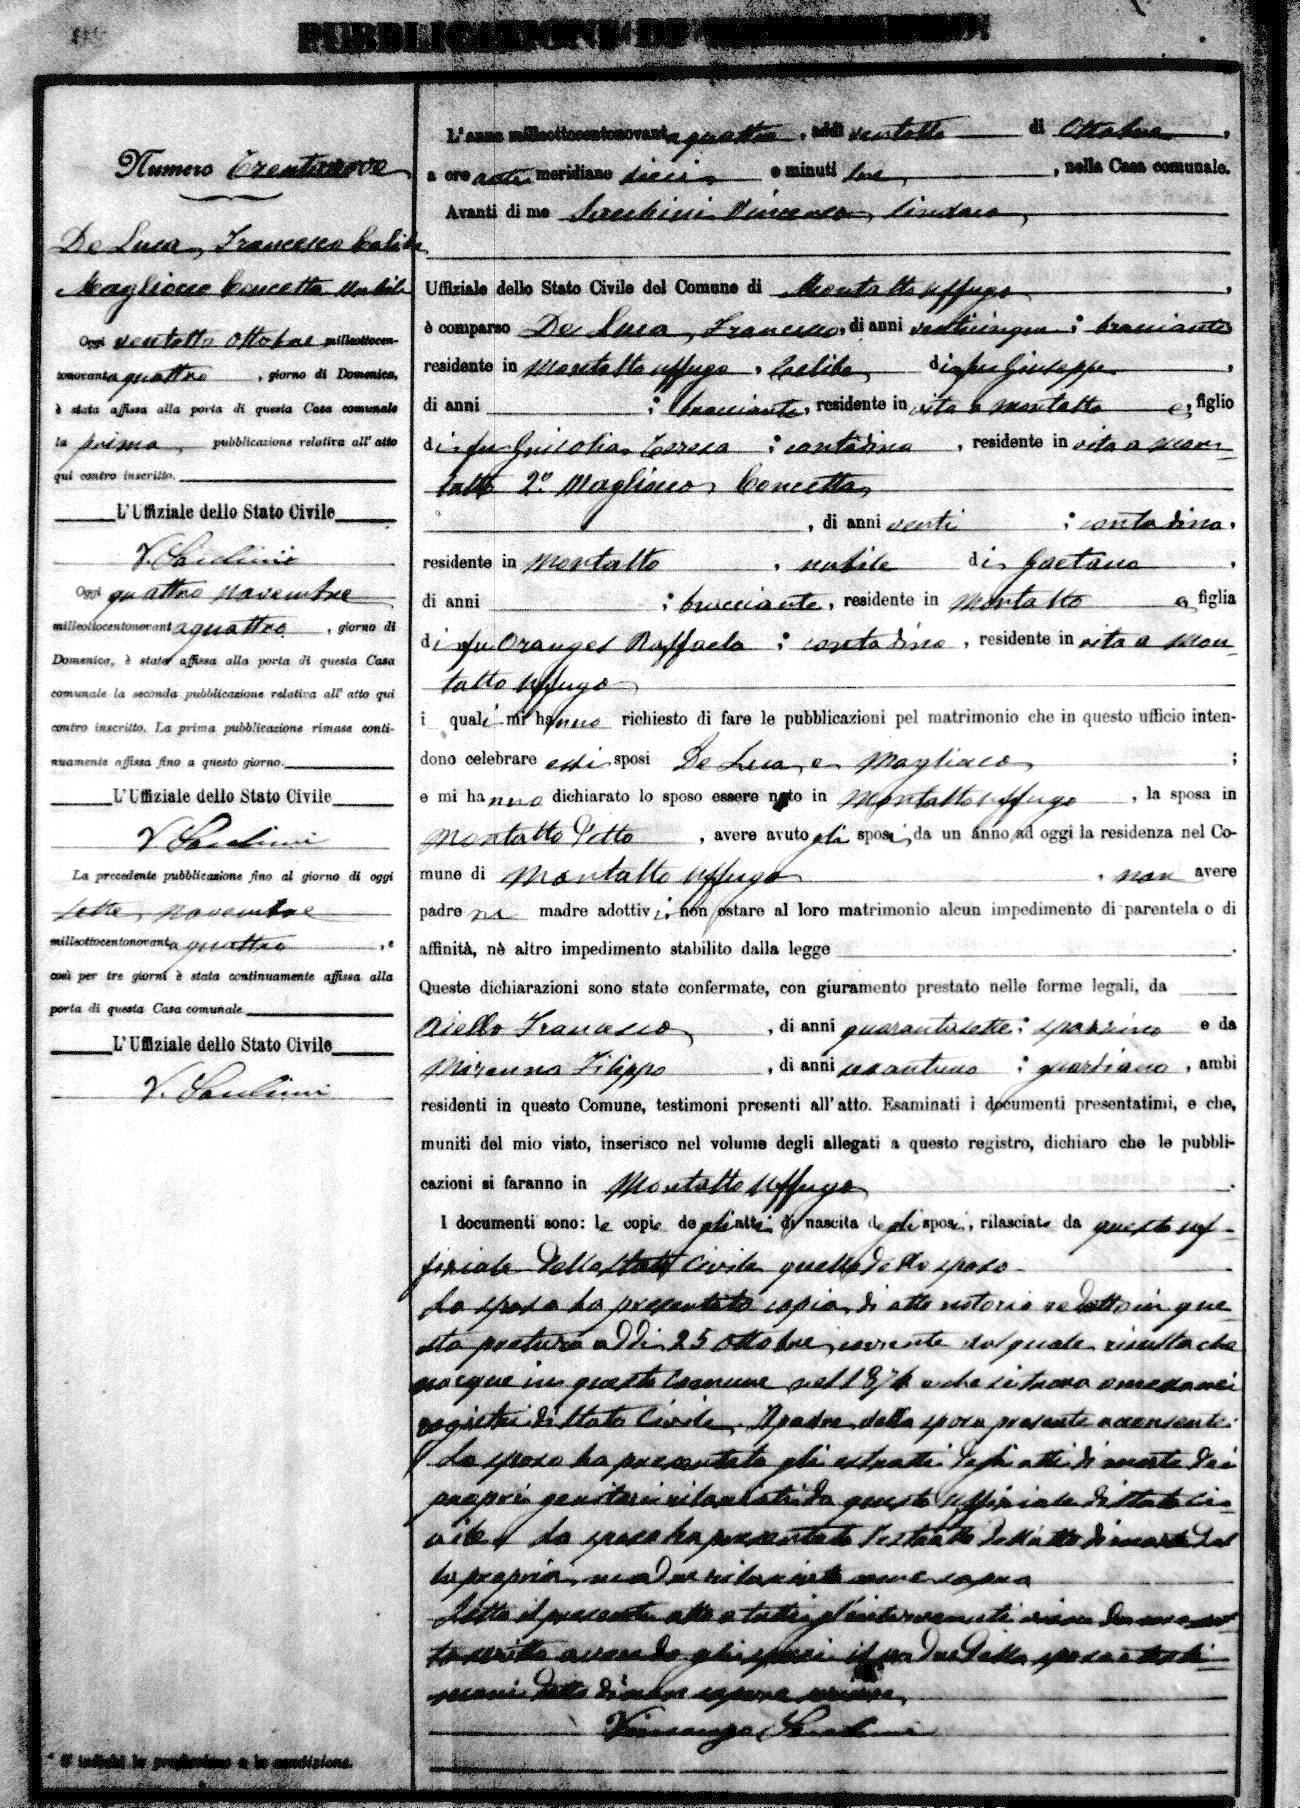 PUBBLICAZIONI DI
Numero Trentanove
De Luca Francesco Celibe
Magliocco Concetta Nubile
Oggi ventotto Ottobre milleottocen-
tonovantaquattro, giorno di Domenica,
è stata affissa alla porta di questa Casa comunale
la prima pubblicazione relativa all'atto
qui contro inscritto.
L'Uffiziale dello Stato Civile
Oggi quattro novembre
milleottocentonovantaquattro, giorno di
Domenica, è stata affissa alla porta di questa Casa
comunale la seconda pubblicazione relativa all'atto qui
contro inscritto. La prima pubblicazione rimase conti-
nuamente affissa fino a questo giorno.
L'Uffiziale dello Stato Civile
La precedente pubblicazione fino al giorno di oggi
sette novembre
milleottocentonovantaquattro, e
così per tre giorni è stata continuamente affissa alla
porta di questa Casa comunale
L'Uffiziale dello Stato Civile
* Si indichi la professione o la condizione.
L'anno milleottocentonovantaquattro, addì ventotto di Ottobre,
a ore anti meridiane dieci e minuti, nella Casa comunale.
Avanti di me Vincenzo, Sindaco
Uffiziale dello Stato Civile del Comune di Montalto Uffugo,
è comparso De Luca Francesco, di anni venticinque; bracciante
residente in Montalto Uffugo, Celibe di fu Giuseppe,
di anni ; bracciante, residente in vita a Montalto e, figlio
di fu Teresa; contadina, residente in vita a Mon-
talto 2° Magliocco Concetta
, di anni venti; contadina,
residente in Montalto, nubile di Gaetano,
di anni ; bracciante, residente in Montalto e figlia
di fu Oranges Raffaela; contadina, residente in vita a Mon-
talto Uffugo
i quali mi hanno richiesto di fare le pubblicazioni pel matrimonio che in questo ufficio inten-
dono celebrare essi sposi De Luca e Magliocco;
e mi hanno dichiarato lo sposo essere nato in Montalto Uffugo, la sposa in
Montalto detto, avere avuto gli sposi, da un anno ad oggi la residenza nel Co-
mune di Montalto Uffugo, non avere
padre nè madre adottivi, non ostare al loro matrimonio alcun impedimento di parentela o di
affinità, nè altro impedimento stabilito dalla legge.
Queste dichiarazioni sono state confermate, con giuramento prestato nelle forme legali, da
Aiello Francesco, di anni quarantasette; spazzino e da
Filippo, di anni; guardiano, ambi
residenti in questo Comune, testimoni presenti all'atto. Esaminati i documenti presentatimi, e che,
muniti del mio visto, inserisco nel volume degli allegati a questo registro, dichiaro che le pubbli-
cazioni si faranno in Montalto Uffugo.
I documenti sono: le copie degli atti di nascita degli sposi, rilasciate da questo uf-
fiziale dello Stato Civile quella dello sposo
La sposa ha presentato copia di atto notorio redatto in que-
sta pretura addì 25 Ottobre corrente dal quale risulta che
nacque in questo Comune nell 874 e che si trova omessa nei
registri di Stato Civile. Il padre della sposa presente acconsente.
Lo sposo ha presentato gli estratti degli atti di morte dei
propri genitori rilasciati da questo Uffiziale di Stato Ci-
vile. La sposa ha presentato l'estratto dell'atto di morte del
la propria madre rilasciato come sopra
Letto il presente atto a tutti gl'intervenuti viene da me sot-
toscritto avendo gli sposi il padre della sposa e testi-
moni detto di non sapere scrivere
Vincenzo